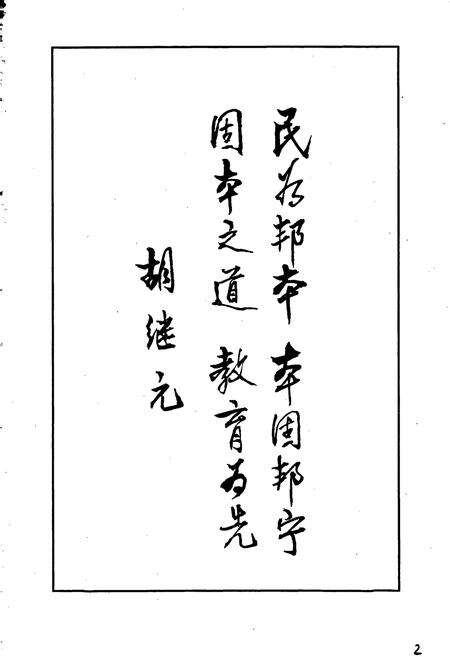 民为邦本 本固邦宁
固本之道 教育为先
胡继元
2